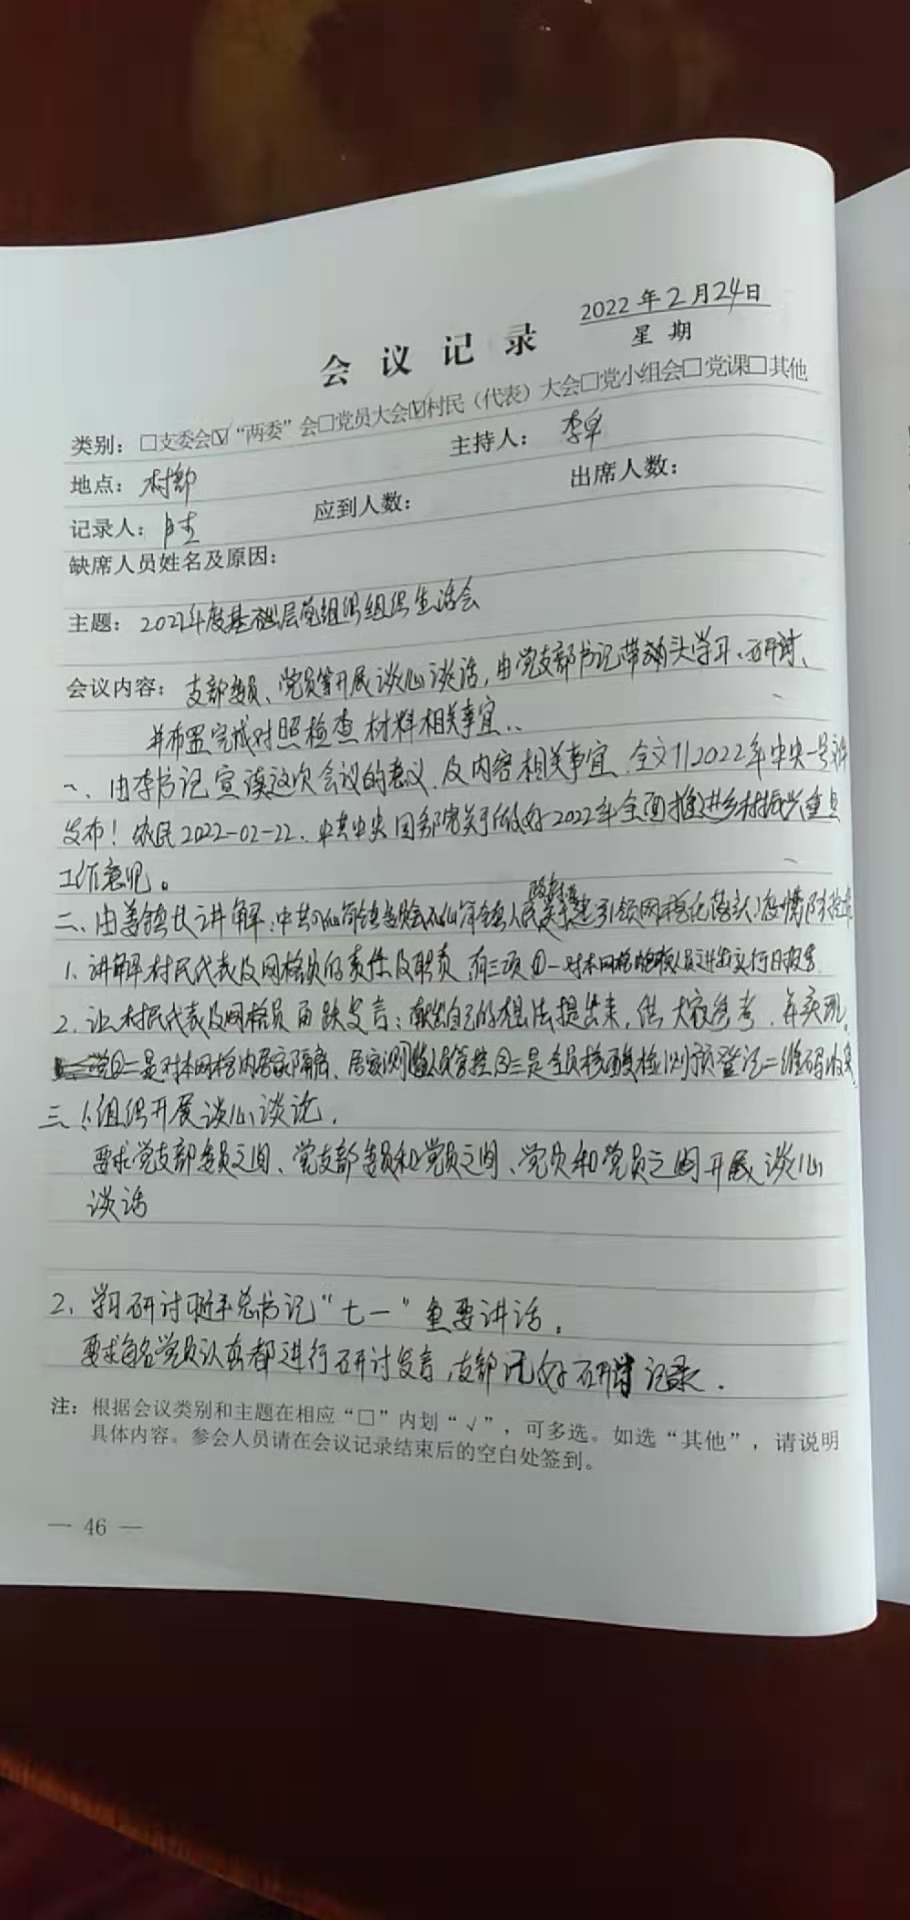 2022年2月24日
会议记录 星期
类别：□支委会☑“两委”会□党员大会☑村民（代表）大会□党小组会□党课□其他
地点：村部 主持人：李单
记录人： 应到人数： 出席人数：
缺席人员姓名及原因：
主题：2021年度基础层党组织组织生活会
会议内容：支部委员、党员等开展谈心谈话，由党支部书记带头学习、研讨、
并布置完成对照检查材料相关事宜..
一、由李书记宣读这次会议的意义及内容相关事宜.全文11 2022年中央一号文件
发布！农民2022-02-22.中共中央国务院关于做好2022年全面推进乡村振兴重点
工作意见。
二、由姜镇长讲解：中共 镇委员会 镇人民政府 党建引领网格化落实
1、讲解村民代表及网格员的责任及职责，有三项①一对本网格 人员 实行日报告
2、让村民代表及网格员面谈发言：献出自己的想法提出来，供大家参考.并实现。
②二是对本网格内居家隔离、居家 人员管控③三是全员核酸检测预登记二维码收集
三、1.组织开展谈心谈论.
要求党支部委员之间、党支部委员和党员之间、党员和党员之间开展谈心
谈话
2、学习研讨习近平总书记“七一”重要讲话。
要求每名党员认真都进行研讨发言，支部记好研讨记录.
注：根据会议类别和主题在相应“□”内划“√”，可多选。如选“其他”，请说明
具体内容。参会人员请在会议记录结束后的空白处签到。
— 46 —